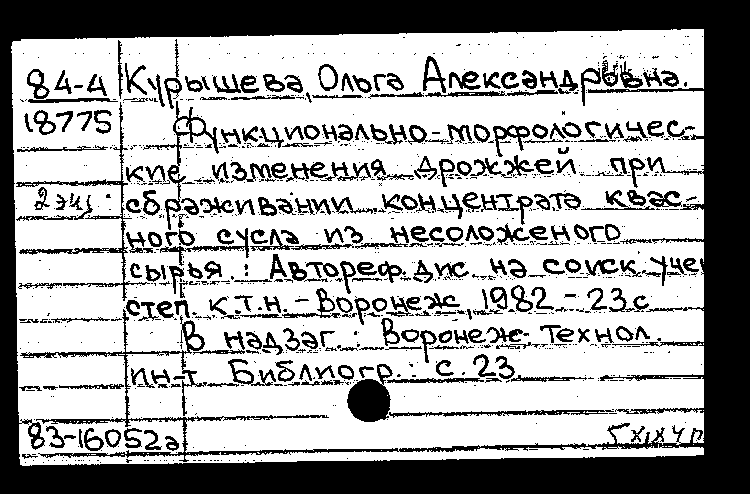 84-4 Курышева, Ольга Александровна.
18775 Функционально-морфологичес-
кие изменения дрожжей при
2 экз. сбраживании концентрата квас-
ного сусла из несоложеного
сырья.: Автореф. дис. на соиск. учен
степ. к.т.н. - Воронеж, 1982 - 23 с
В надзаг.: Воронеж. технол.
ин-т. Библиогр.: с. 23.
83-16052а